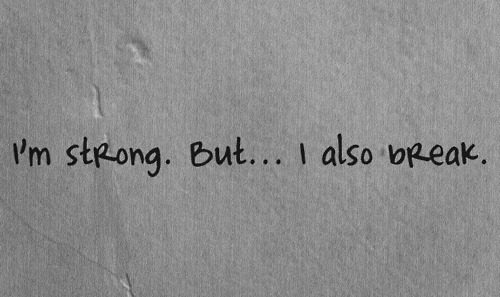 I'm strong. But... I also break.